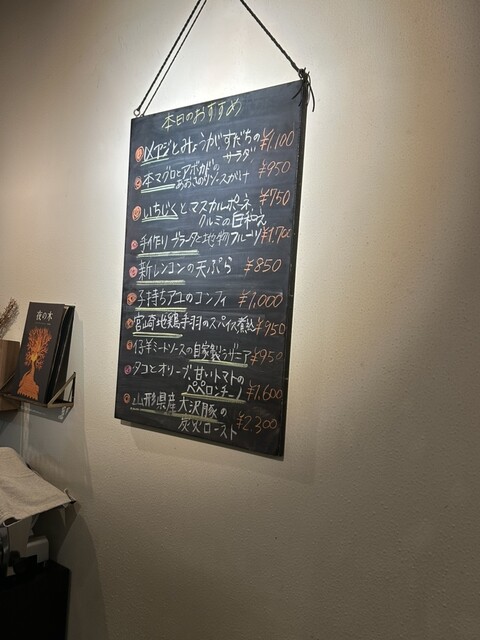 本日のおすすめ
〆アジとみょうが、すだちの
サラダ ¥1,100
本マグロとアボカドの
あおさのりソースがけ ¥950
いちじくとマスカルポーネ、
クルミの白和え ¥750
手作りブラータと地物フルーツ ¥1,700
新レンコンの天ぷら ¥850
子持ちアユのコンフィ ¥1,000
宮崎地鶏手羽のスパイス煮込 ¥950
仔羊ミートソースの自家製ラザニア ¥950
タコとオリーブ、甘いトマトの
ペペロンチーノ ¥1,600
山形県産大沢豚の
炭火ロースト ¥2,300
夜の木